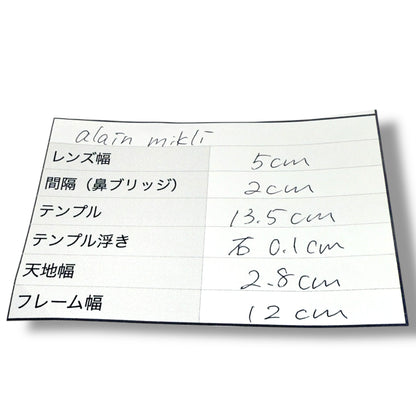 alain mikli
レンズ幅 5cm
間隔（鼻ブリッジ） 2cm
テンプル 13.5cm
テンプル浮き 右 0.1cm
天地幅 2.8cm
フレーム幅 12cm